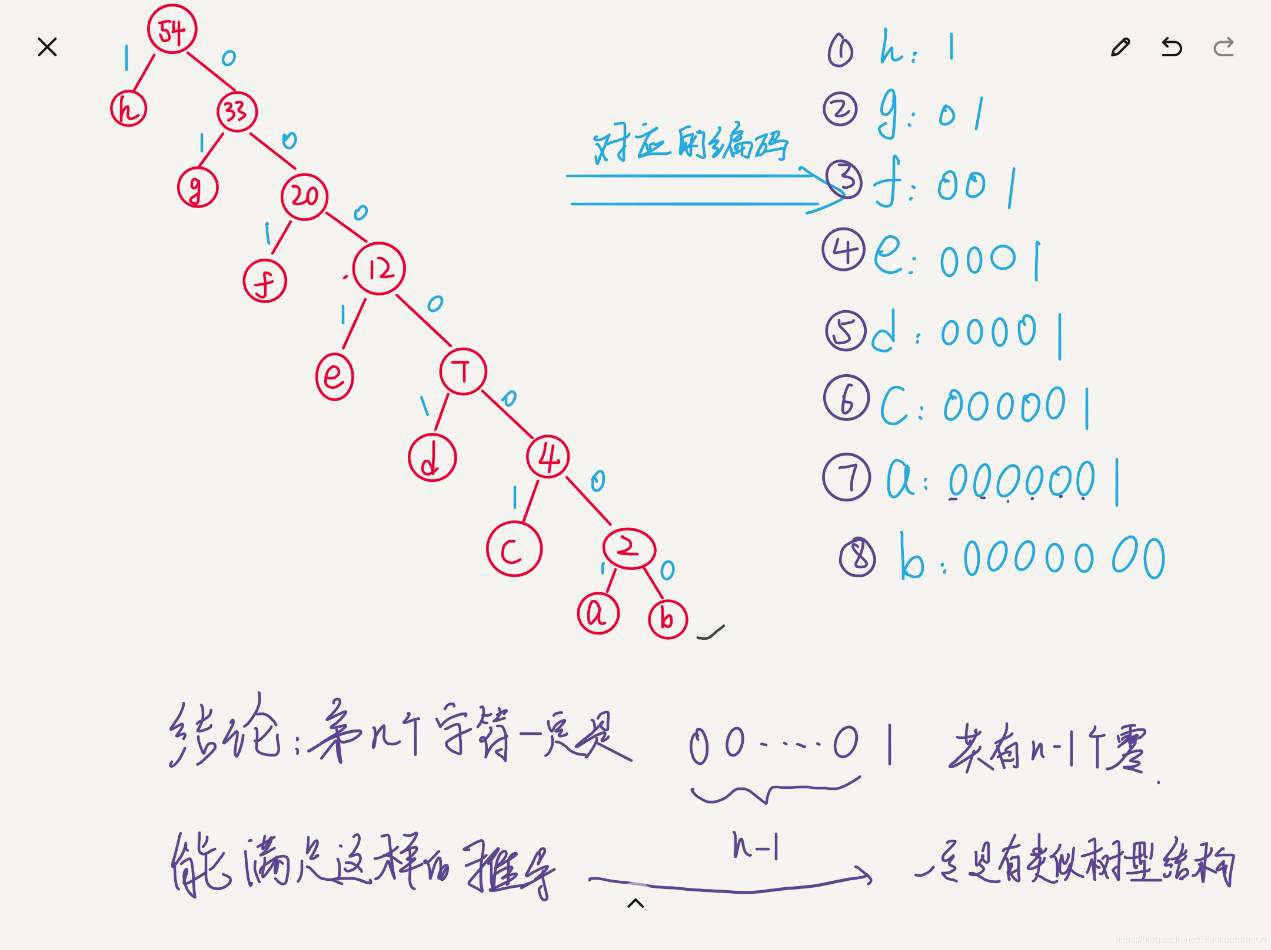 54
1 0
h 33
1 0
g 20
1 0
f 12
1 0
e 7
1 0
d 4
1 0
C 2
1 0
a b
对应的编码
① h: 1
② g: 01
③ f: 001
④ e: 0001
⑤ d: 00001
⑥ C: 000001
⑦ a: 0000001
⑧ b: 0000000
结论:第n个字符一定是 00·····01 共有n-1个零.
n-1
能满足这样的推导 一定是有类似树型结构